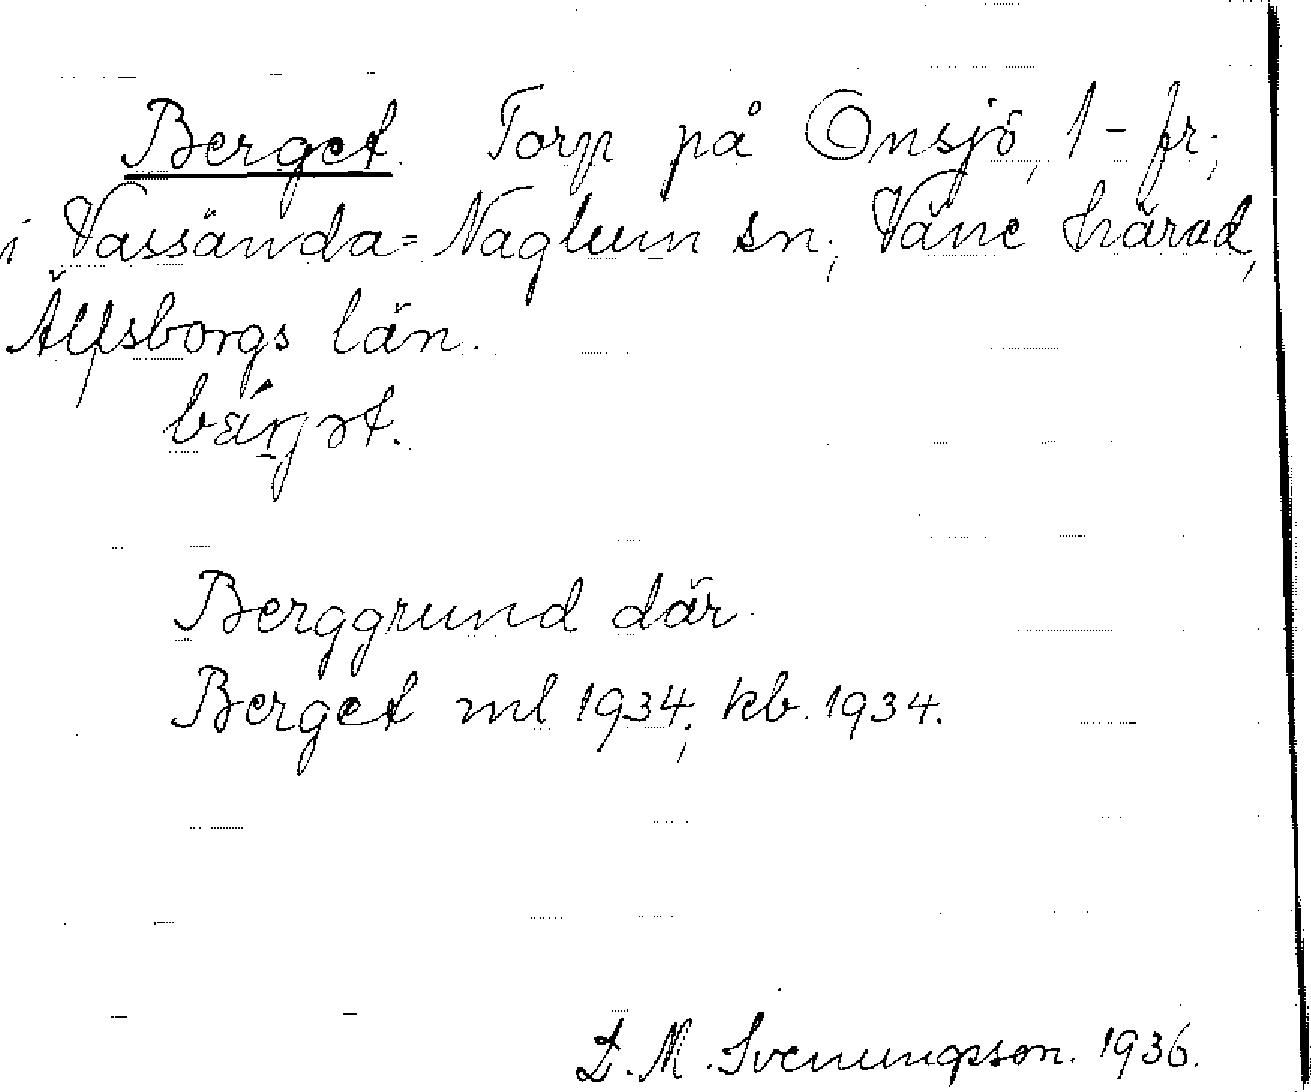 Berget. Torp på Onsjö, 1-fr.,
i Vassända=Naglum sn, Väne härad,
Älfsborgs län.
Berggrund där.
Berget ml 1934, kb. 1934.
M. Svenungsson. 1936.